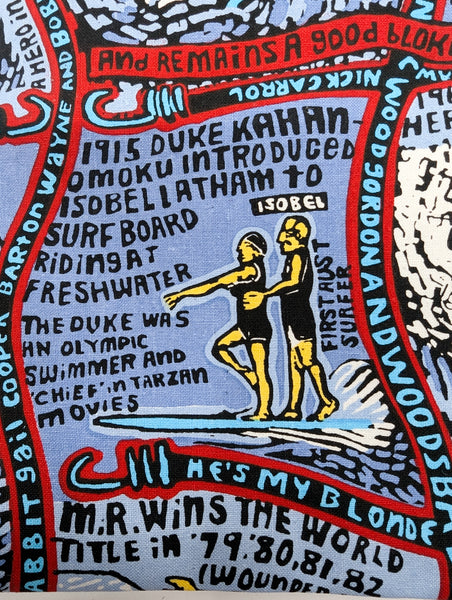 AND REMAINS A gOOD bLOKE
NICK CARROL
A HERO IN
WAYNE AND BOB
COOPER BARTON
GAIL
1915 DUKE KAHAN-
OMOKU INTRODUCED
ISOBEL LATHAM tO
SURF BOARD
RiDiNg AT
FRESHWATER
ISOBEL
FIRST AUST
SURFER
THE DUKE WAS
AN OLYMPIC
SWIMMER AND
'CHIEF' iN TARZAN
MOVIES
WOOD GORDON AND WOODS
HE'S MY BLONDE
M.R. WiNS THE WORLD
TiTLE iN '79.'80,81.82
(WOUNDED